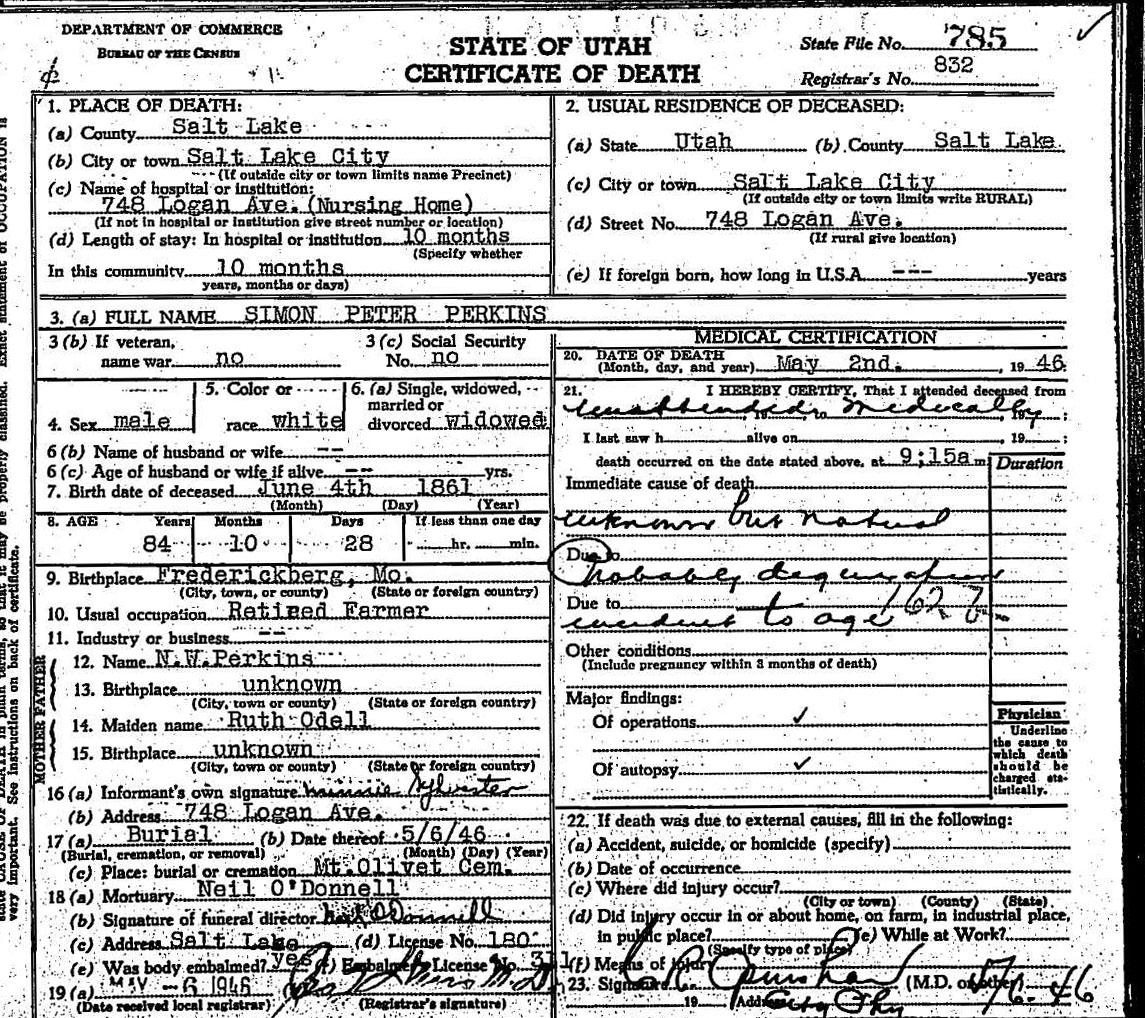 DEPARTMENT OF COMMERCE
BUREAU OF THE CENSUS
STATE OF UTAH
CERTIFICATE OF DEATH
State File No. 785
Registrar's No. 832
1. PLACE OF DEATH:
(a) County Salt Lake
(b) City or town Salt Lake City
(If outside city or town limits name Precinct)
(c) Name of hospital or institution:
748 Logan Ave. (Nursing Home)
(If not in hospital or institution give street number or location)
(d) Length of stay: In hospital or institution 10 months
(Specify whether
In this community 10 months
years, months or days)
2. USUAL RESIDENCE OF DECEASED:
(a) State Utah (b) County Salt Lake
(c) City or town Salt Lake City
(If outside city or town limits write RURAL)
(d) Street No. 748 Logan Ave.
(If rural give location)
(e) If foreign born, how long in U.S.A. --- years
3. (a) FULL NAME SIMON PETER PERKINS
3 (b) If veteran, 3 (c) Social Security
name war no No. no
5. Color or 6. (a) Single, widowed,
married or
4. Sex male race white divorced widowed
6 (b) Name of husband or wife --
6 (c) Age of husband or wife if alive -- yrs.
7. Birth date of deceased June 4th 1861
(Month) (Day) (Year)
8. AGE Years Months Days If less than one day
84 10 28 hr. min.
9. Birthplace Frederickberg, Mo.
(City, town, or county) (State or foreign country)
10. Usual occupation Retired Farmer
11. Industry or business --
MOTHER FATHER
12. Name N.W.Perkins
13. Birthplace unknown
(City, town or county) (State or foreign country)
14. Maiden name Ruth Odell
15. Birthplace unknown
(City, town or county) (State or foreign country)
16 (a) Informant's own signature Minnie Sylvester
(b) Address 748 Logan Ave.
17 (a) Burial (b) Date thereof 5/6/46
(Burial, cremation, or removal) (Month) (Day) (Year)
(c) Place: burial or cremation Mt.Olivet Cem.
18 (a) Mortuary Neil O'Donnell
(b) Signature of funeral director Neil O'Donnell
(c) Address Salt Lake (d) License No. 180
(e) Was body embalmed? yes (f) Embalmer's License No. 311
19 (a) MAY -6 1946
(Date received local registrar) (Registrar's signature)
MEDICAL CERTIFICATION
20. DATE OF DEATH
(Month, day, and year) May 2nd. , 19 46
21. I HEREBY CERTIFY, That I attended deceased from
unattended medically
I last saw h alive on , 19 ;
death occurred on the date stated above, at 9;15a m
Duration
Immediate cause of death
unknown but natural
Due to
Probably degeneration
Due to 162
incident to age
Other conditions
(Include pregnancy within 3 months of death)
Major findings:
Of operations ✓
Of autopsy ✓
Physician
Underline
the cause to
which death
should be
charged sta-
tistically.
22. If death was due to external causes, fill in the following:
(a) Accident, suicide, or homicide (specify)
(b) Date of occurrence
(c) Where did injury occur?
(City or town) (County) (State)
(d) Did injury occur in or about home, on farm, in industrial place,
in public place? (e) While at Work?
(Specify type of place)
(f) Means of injury
23. Signature (M.D. or other) 5/6-46
19 Address City Phy
very important. See instructions on back of certificate.